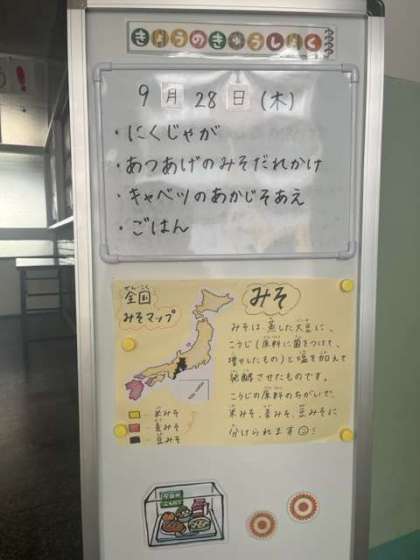 きょうのきゅうしょく
9月28日(木)
・にくじゃが
・あつあげのみそだれかけ
・キャベツのあかじそあえ
・ごはん
全国
みそマップ
みそ
みそは蒸した大豆に、
こうじ(原料に菌をつけて、
増やしたもの)と塩を加えて
発酵させたものです。
こうじの原料のちがいで、
米みそ、麦みそ、豆みそに
分けられます
米みそ
麦みそ
豆みそ